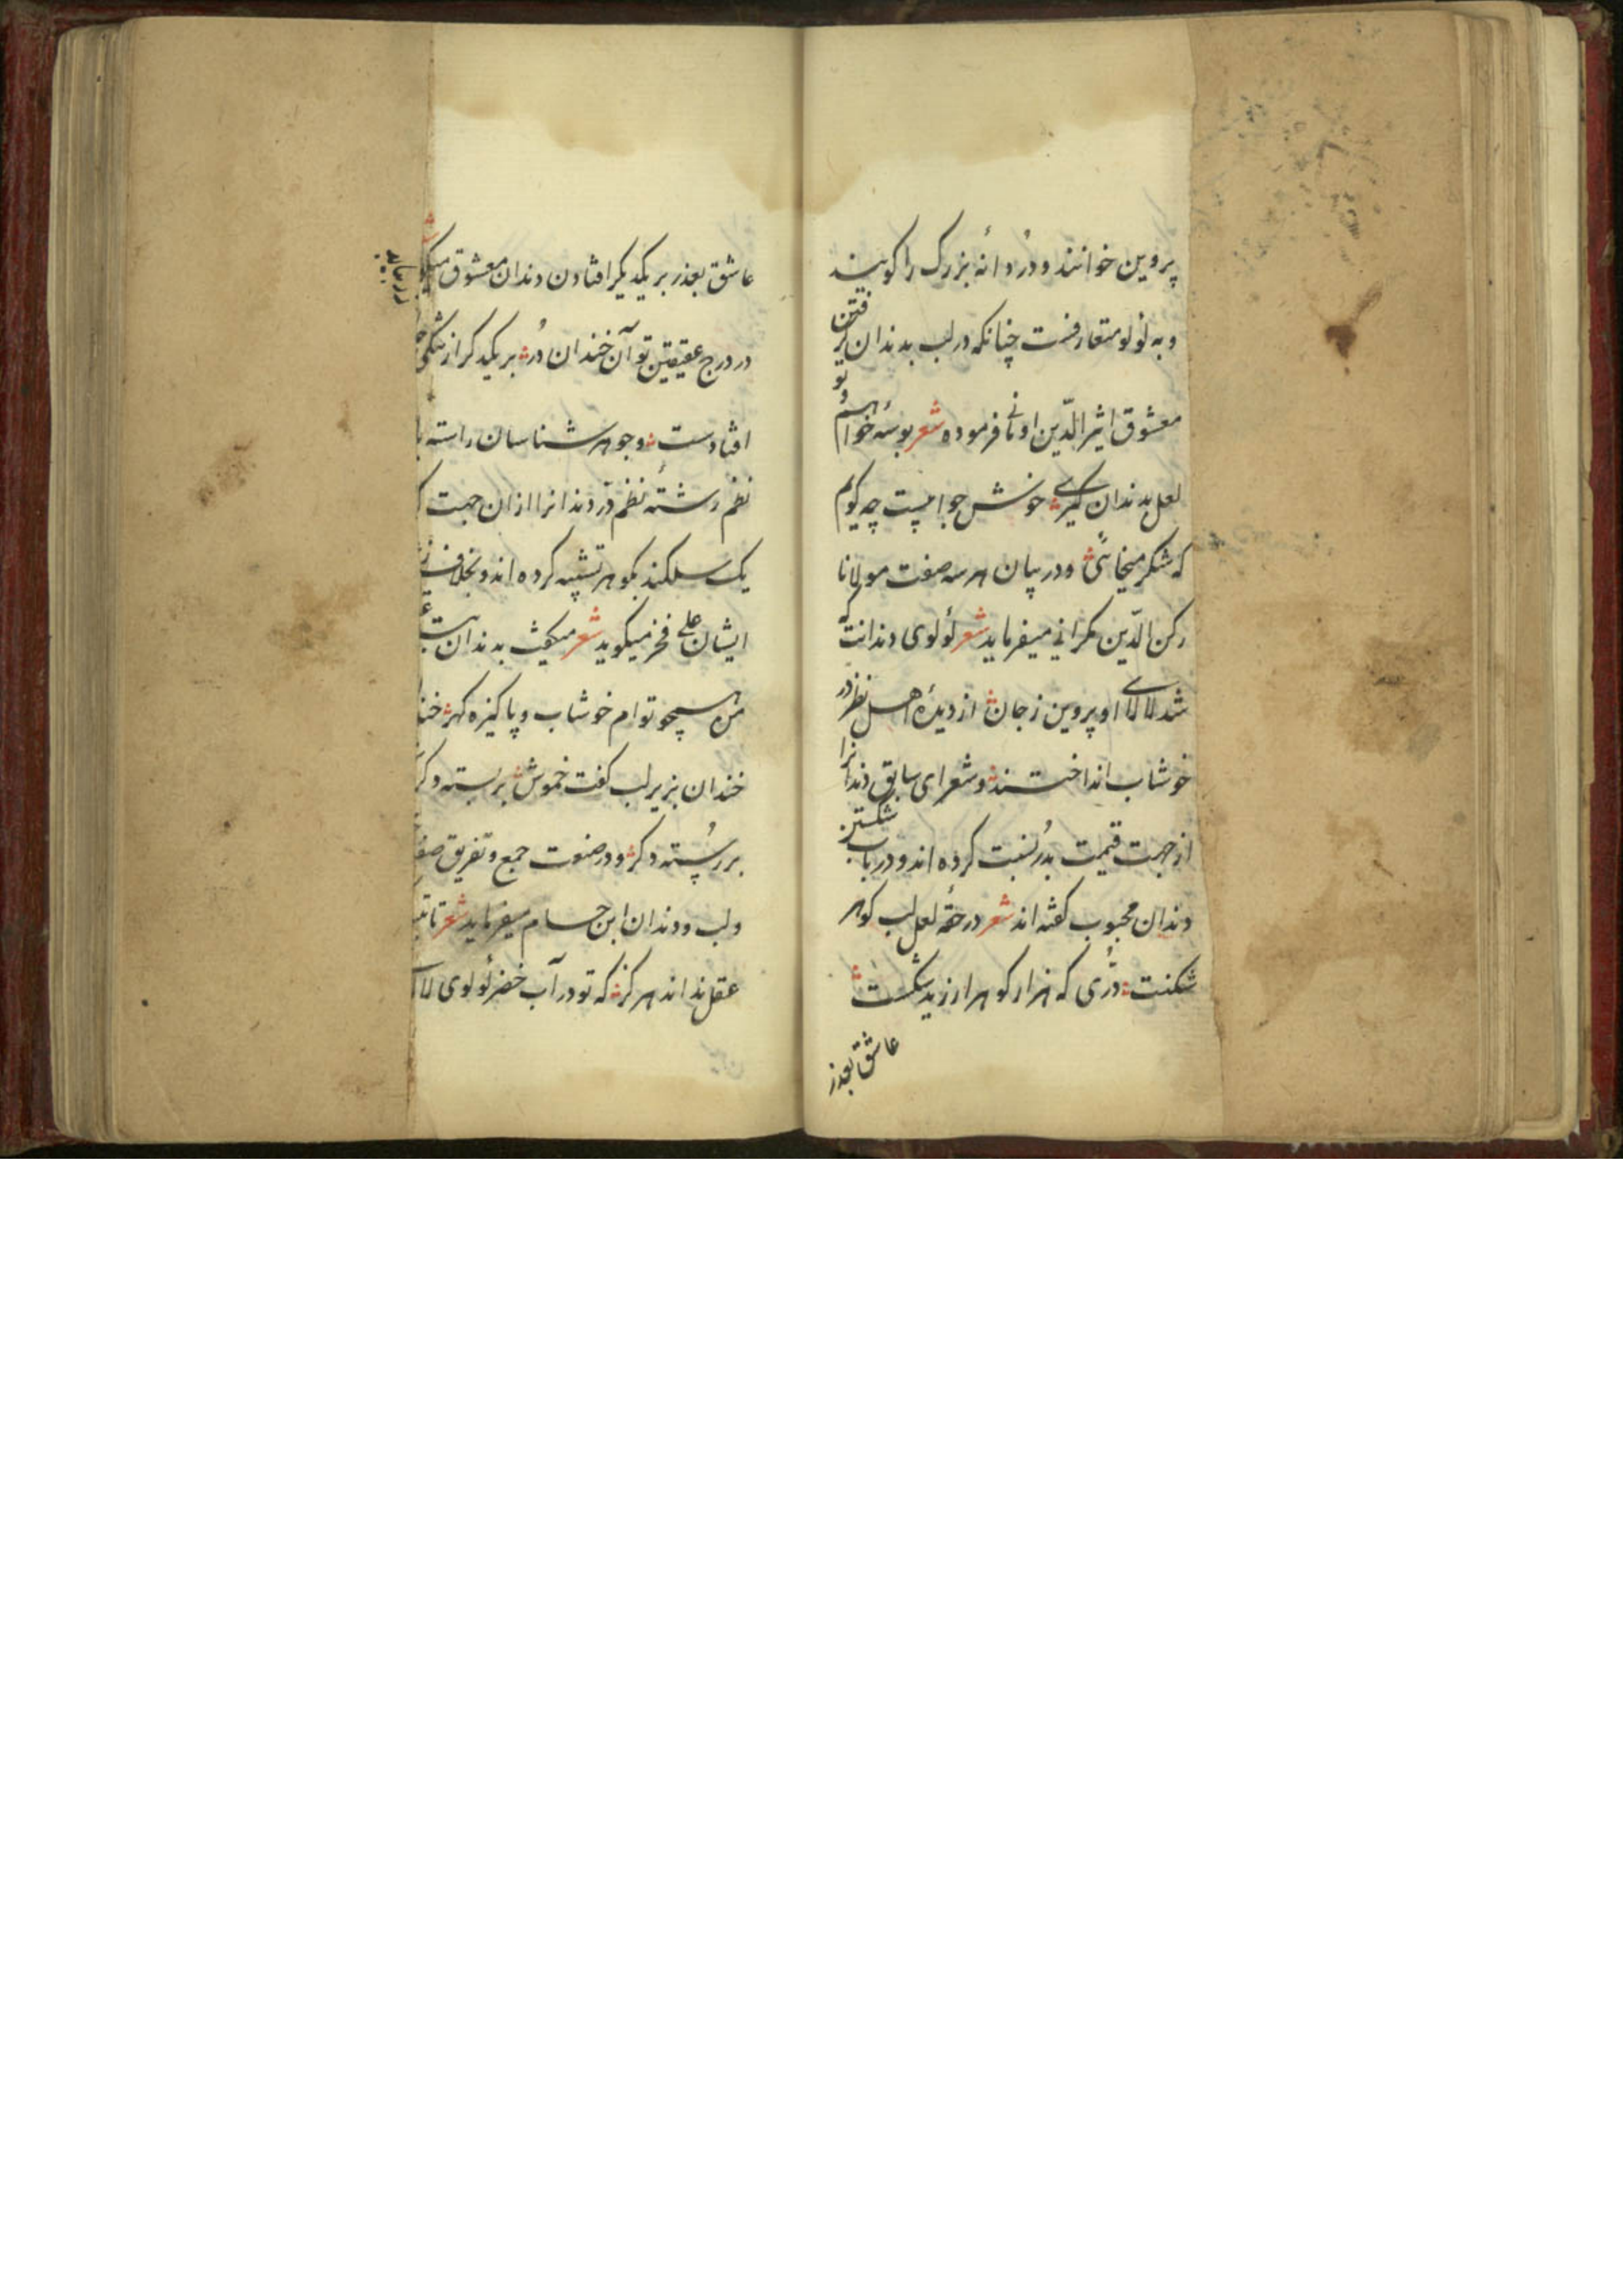 پروین خوانند و دُر دانهٔ بزرگ را کویند
و به لولو متعارفست چنانکه در لب بدندان گرفتن
معشوق اثیر الدّین اومانی فرموده شعر بوسهٔ خواهم و تو
لعل بدندان گیری خوش جوابیست چه کویم
که شکر میخائی و در بیان هر سه صفت مولانا
رکن الدّین بکرانی میفرماید شعر لؤلوی دندانت که
شد لالای او پروین ز جان از دیدهٔ اهل نظر در
خوشاب انداختند و شعرای سابق دندانرا
از جهت قیمت بدُر نسبت کرده اند و در باب شکستن
دندان محبوب کفته اند شعر در حقهٔ لعل لب کوهر
شکنت دُرّی که هزار کوهر ارزید شکست
عاشق بعذر
عاشق بعذر بر یکدیکر افتادن دندان معشوق
در درج عقیقین تو آن خندان دُر بر یکدکر از
افتادست و جوهر شناسان راسته
نظم رشتهٔ نظم درّ دندانرا ازان جهت
یک سلکند بکوهر تشبیه کرده اند و بخلاف
ایشان علی فخر میکوید شعر میکفت بدندان
من همچو توام خوشاب و پاکیزه کهر
خندان بزیر لب کفت خموش بربسته دکر
بررُسته دکر و در صنوت جمع و تفریق
ولب و دندان ابن حسام میفرماید شعر
عقل نداند هرکز که تو در آب خضر لؤلوی لالا